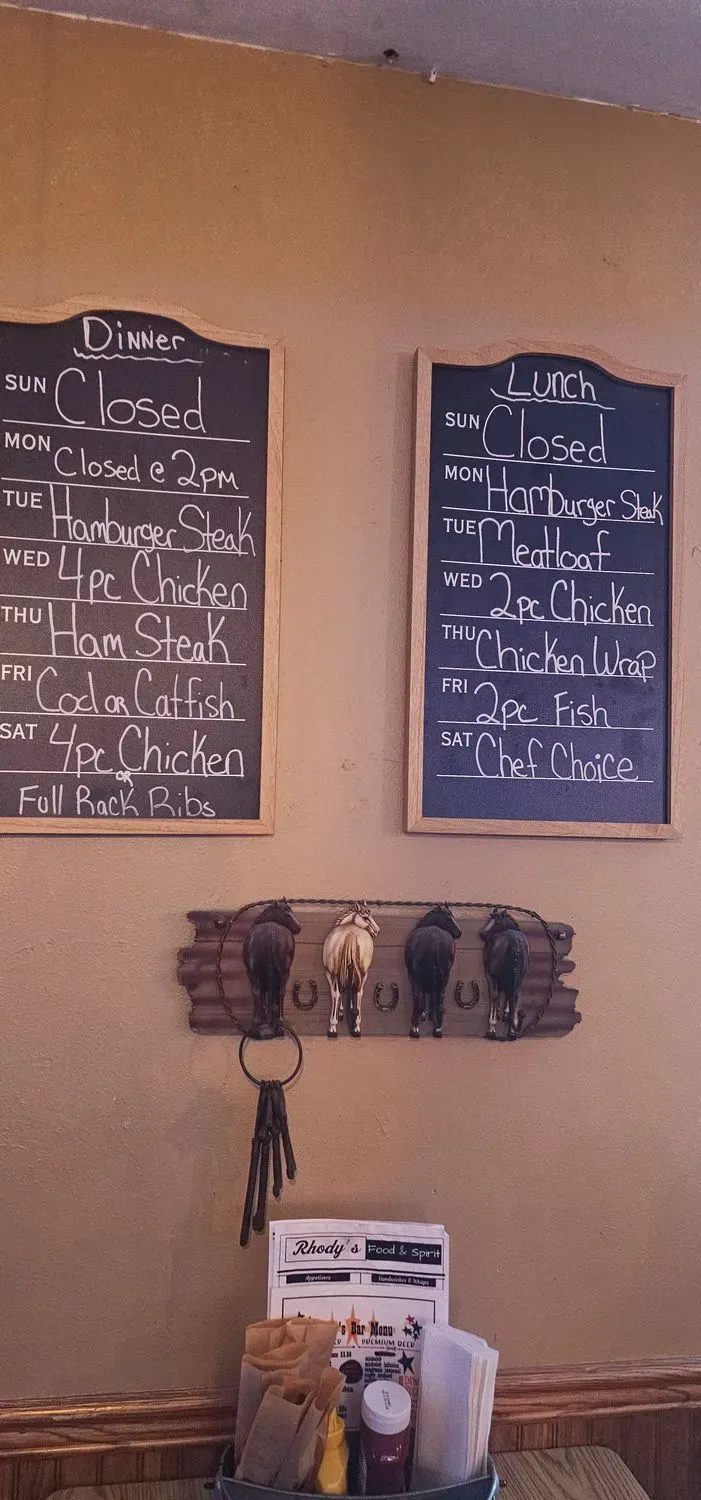 Dinner
SUN Closed
MON Closed @ 2pm
TUE Hamburger Steak
WED 4pc Chicken
THU Ham Steak
FRI Cod or Catfish
SAT 4pc Chicken
or
Full Rack Ribs
Lunch
SUN Closed
MON Hamburger Steak
TUE Meatloaf
WED 2pc Chicken
THU Chicken Wrap
FRI 2pc Fish
SAT Chef Choice
Rhody's Food & Spirit
Appetizers Sandwiches & Wraps
's Bar Menu
PREMIUM BEER